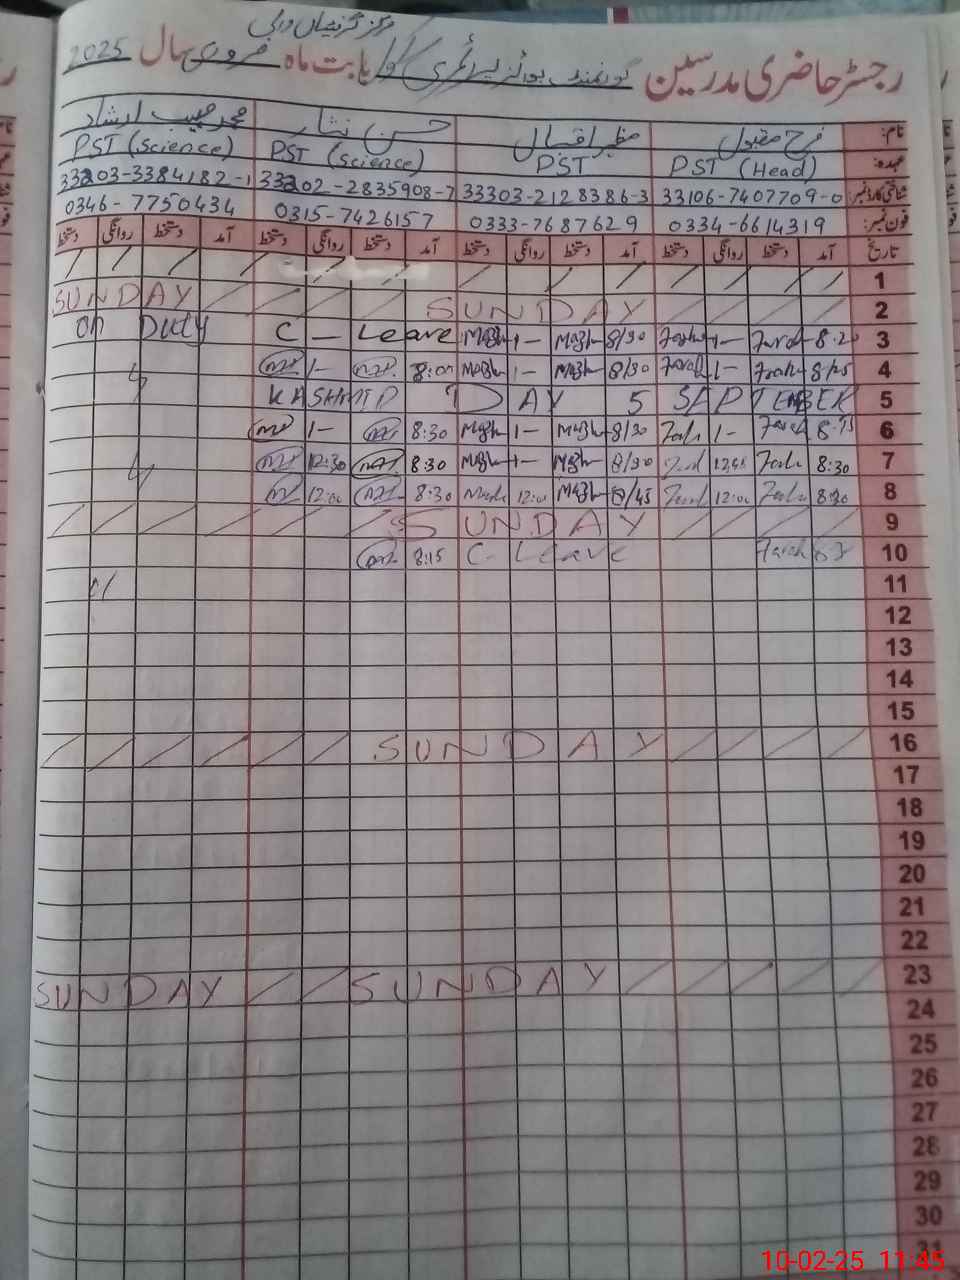 مرکز گڑنیٹاں والی
رجسٹر حاضری مدرسین گورنمنٹ بوائز پرائمری سکول بابت ماہ فروری سال 2025
نام: فرح مقبول مظہر اقبال حسن نثار محمد حبیب ارشاد
عہدہ: PST (Head) PST PST (Science) PST (Science)
شناختی کارڈ نمبر: 33106-7407709-0 33303-2128386-3 33202-2835908-7 33203-3384182-1
فون نمبر: 0334-6614319 0333-7687629 0315-7426157 0346-7750434
تاریخ آمد دستخط روانگی دستخط آمد دستخط روانگی دستخط آمد دستخط روانگی دستخط آمد دستخط روانگی دستخط
1
SUNDAY SUNDAY 2
on Duty C - Leave Mazh 1- Mazh 8/30 Farah 1- Farah 8:20 3
1- 8:00 Mazh 1- Mazh 8/30 Farah 1- Farah 8:15 4
KASHMIR DAY 5 SEPTEMBER 5
1- 8:30 Mazh 1- Mazh 8/30 Farah 1- Farah 8:15 6
12:30 8:30 Mazh 1- Mazh 8/30 Farah Farah 8:30 7
12:00 8:30 Mazh 12:00 Mazh 8/45 Farah 12:00 Farah 8:30 8
SUNDAY 9
8:15 C-Leave Farah 10
11
12
13
14
15
SUNDAY 16
17
18
19
20
21
22
SUNDAY SUNDAY 23
24
25
26
27
28
29
30
31
10-02-25 11:45